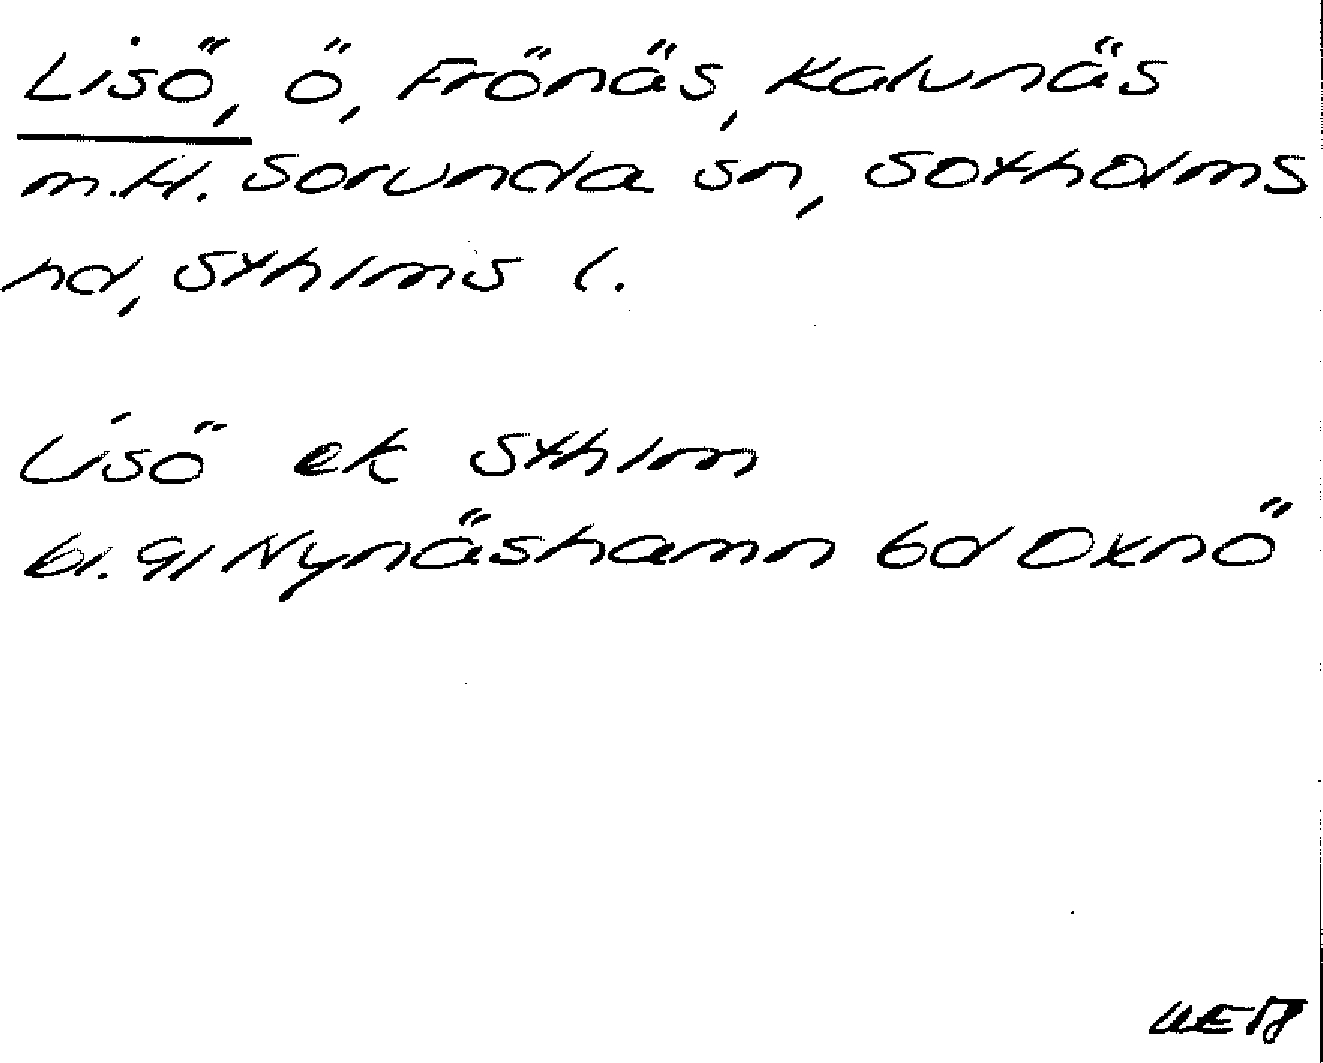 Lisö, ö, Frönäs, Kalvnäs
m.fl. Sorunda sn, Sotholms
hd, Sthlms l.
Lisö ek Sthlm
bl. 91 Nynäshamn 6d Oxnö